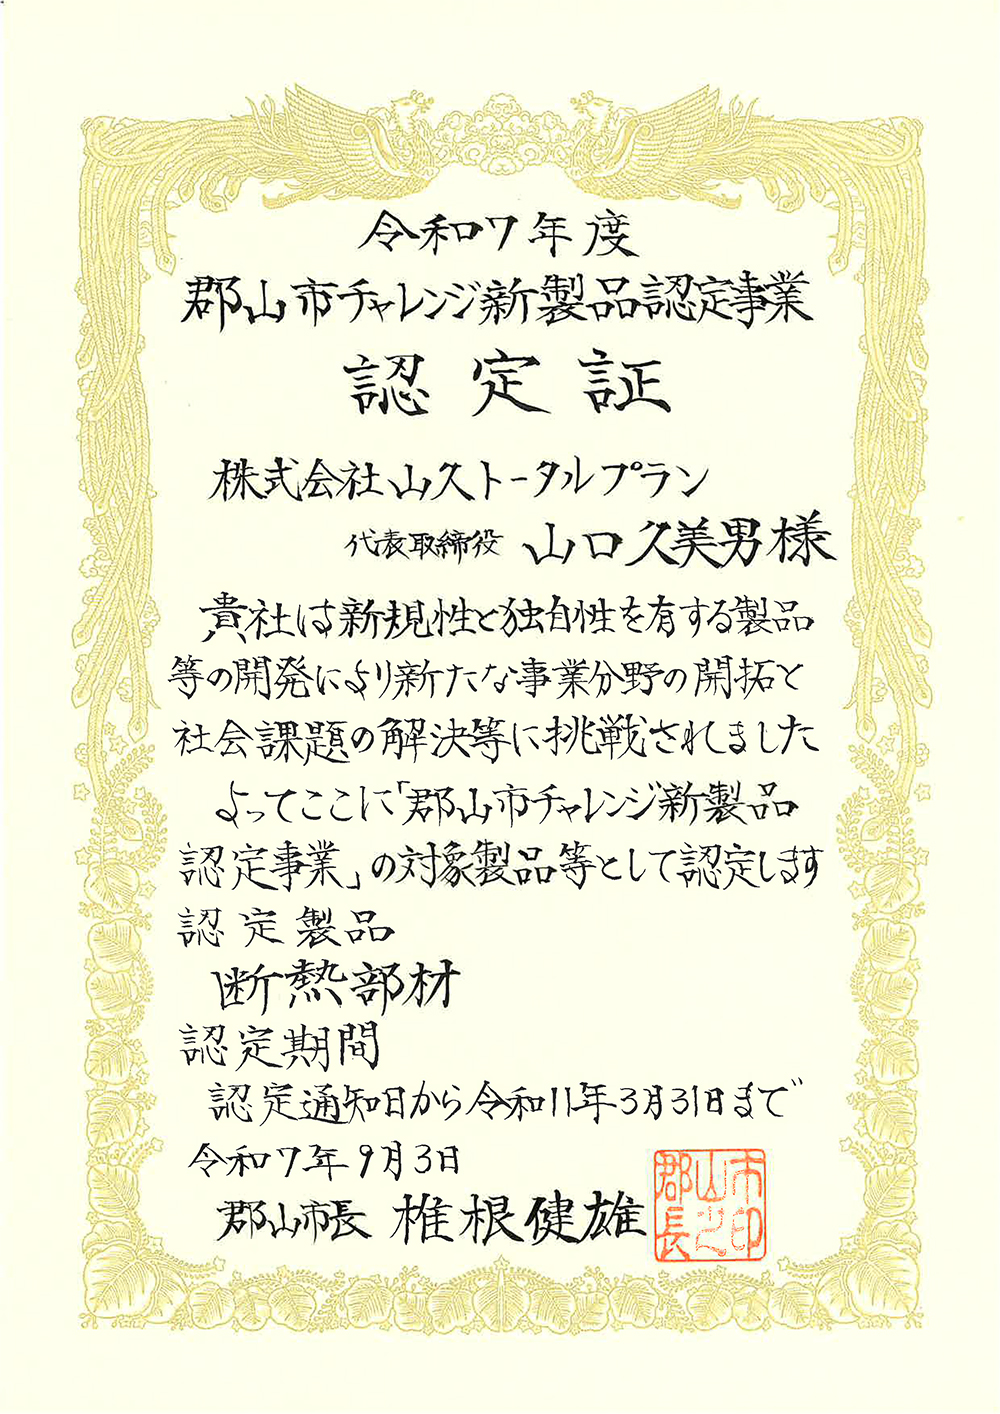 令和7年度
郡山市チャレンジ新製品認定事業
認定証
株式会社山久トータルプラン
代表取締役 山口久美男様
貴社は新規性と独自性を有する製品
等の開発により新たな事業分野の開拓と
社会課題の解決等に挑戦されました
よってここに「郡山市チャレンジ新製品
認定事業」の対象製品等として認定します
認定製品
断熱部材
認定期間
認定通知日から令和11年3月31日まで
令和7年9月3日
郡山市長 椎根健雄
市印
山之
郡長